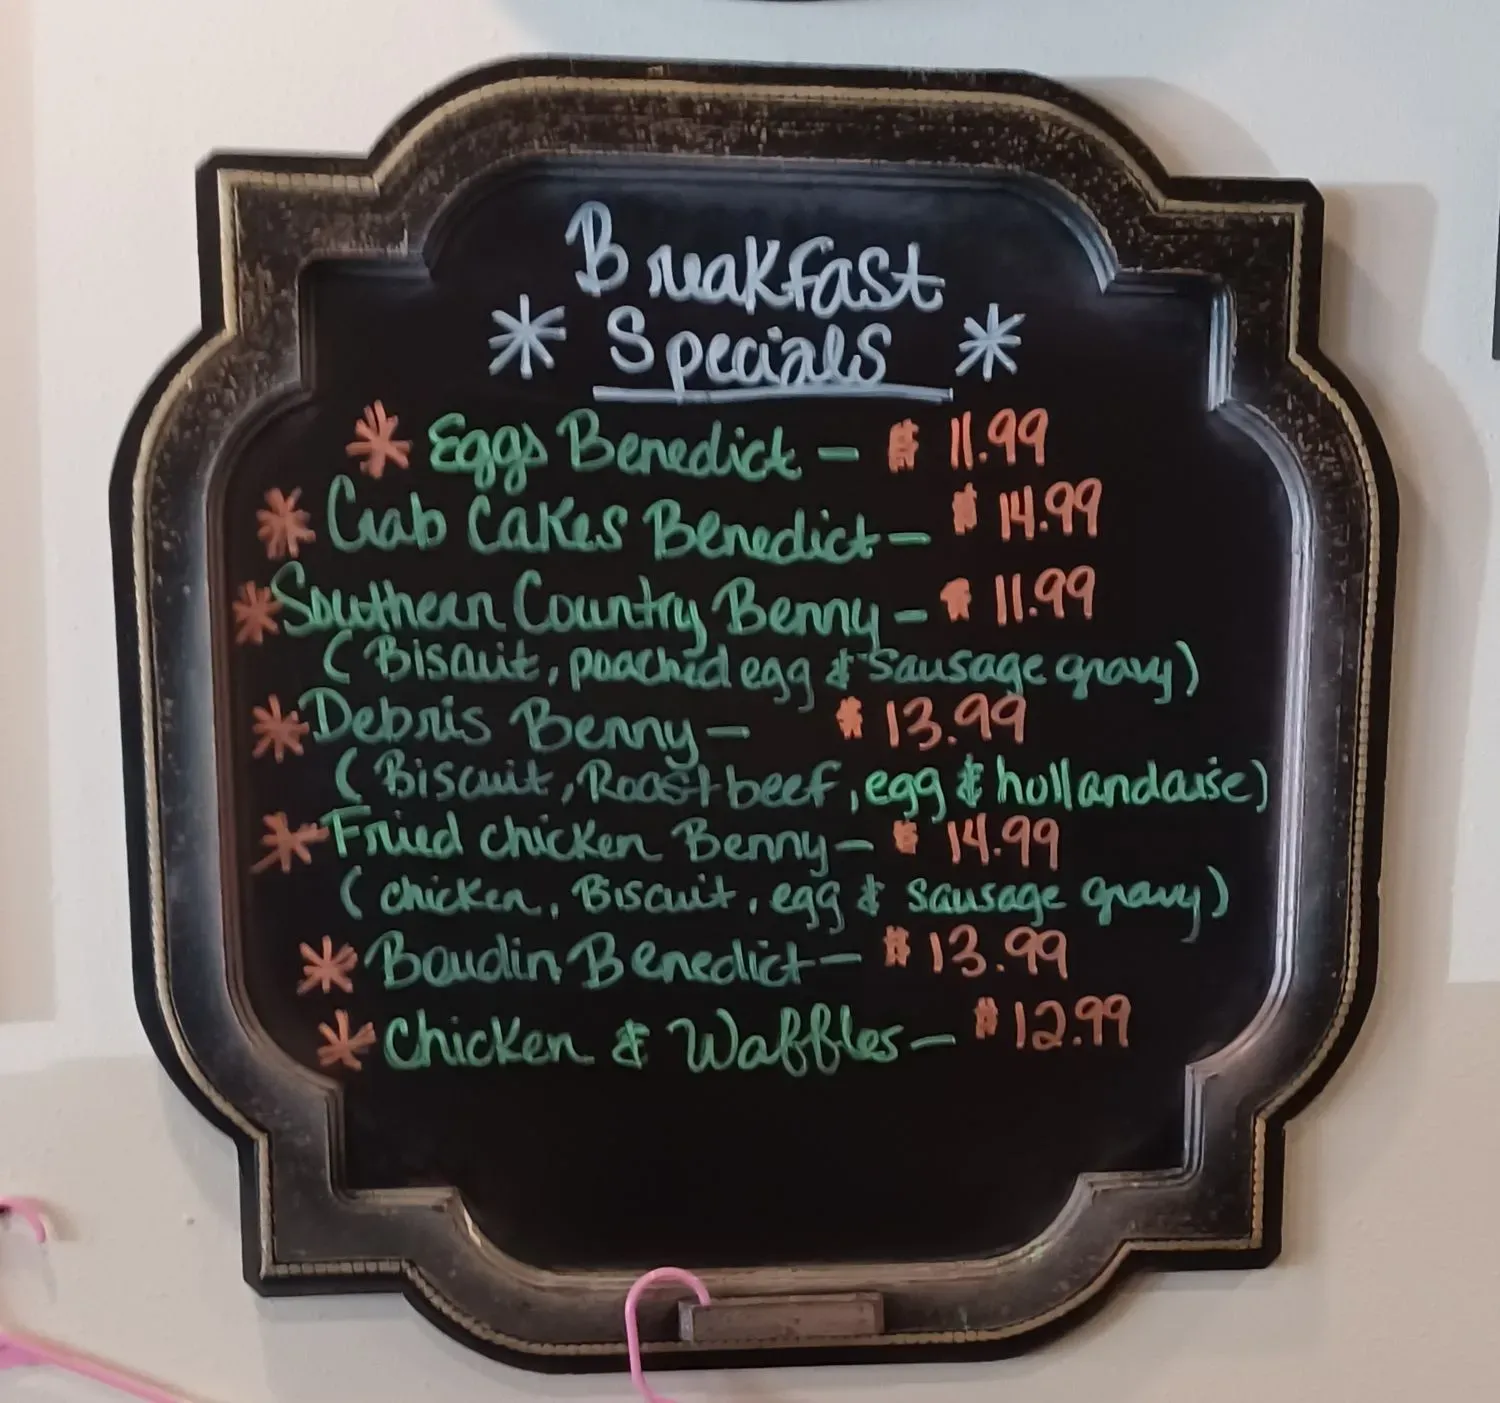 Breakfast
* Specials *
* Eggs Benedict - $ 11.99
* Crab Cakes Benedict - $ 14.99
* Southern Country Benny - $ 11.99
( Biscuit, poached egg & Sausage gravy )
* Debris Benny - $ 13.99
( Biscuit, Roast beef, egg & hollandaise )
* Fried chicken Benny - $ 14.99
( chicken, Biscuit, egg & sausage gravy )
* Boudin Benedict - $ 13.99
* Chicken & Waffles - $ 12.99